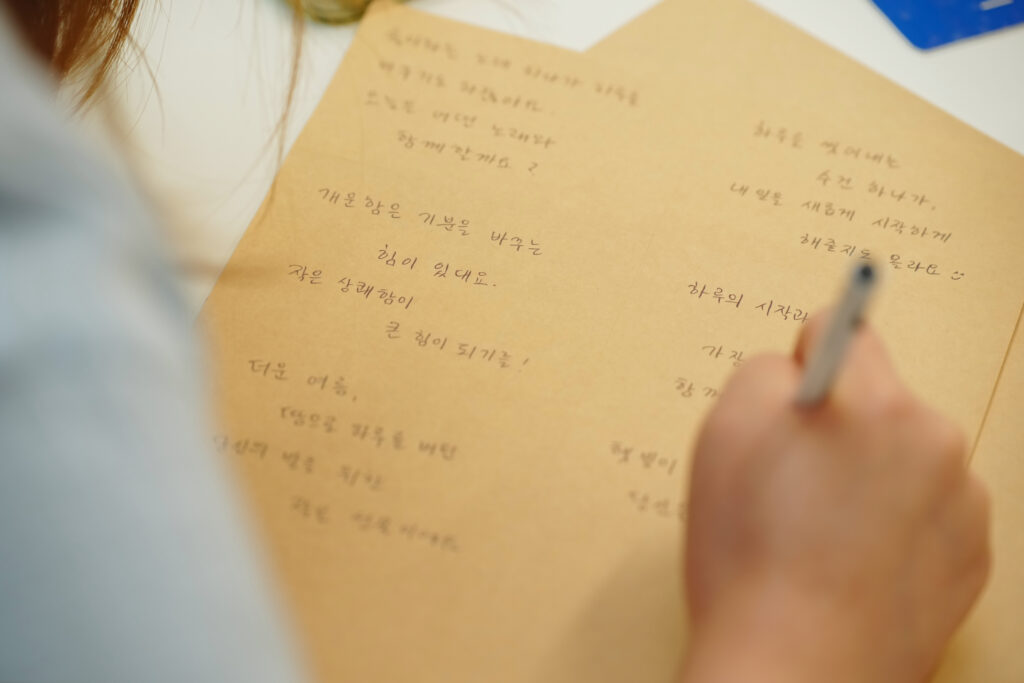 좋아하는 노래 하나가 하루를
바꾸기도 하잖아요.
오늘은 어떤 노래와
함께 할까요?
개운함은 기분을 바꾸는
힘이 있대요.
작은 상쾌함이
큰 힘이 되기를!
더운 여름,
땀으로 하루를 버틴
당신의 밤을 위한
하루를 씻어내는
수건 하나가,
내일을 새롭게 시작하게
해줄지도 몰라요 :)
하루의 시작과
햇빛이